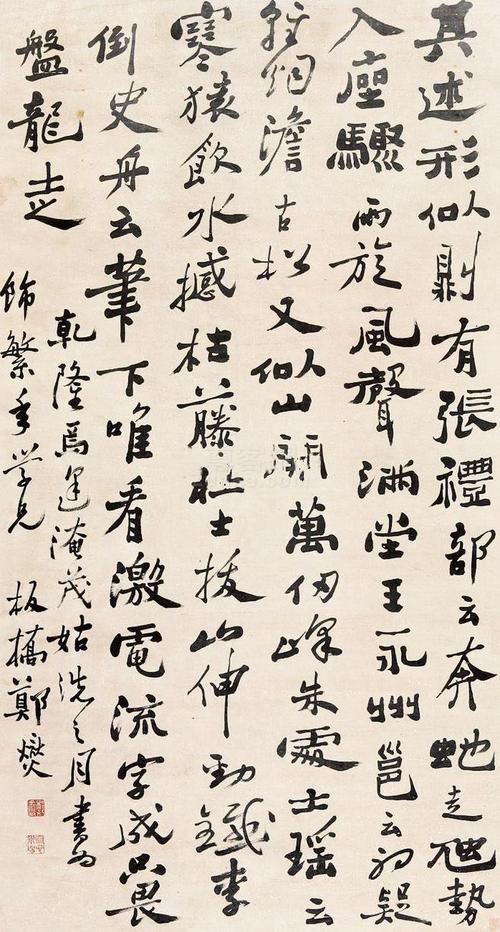 其述形似則有張禮部云奔虵走虺勢
入座驟雨旋風聲滿堂王永州邕云初疑
輕烟澹古松又似山開萬仞峰朱處士瑤云
寒猿飲水撼枯藤壯士拔山伸勁鐵李
御史舟云筆下唯看激電流字成只畏
盤龍走
乾隆焉逢淹茂姑洗之月書為
年學兄 板橋鄭燮